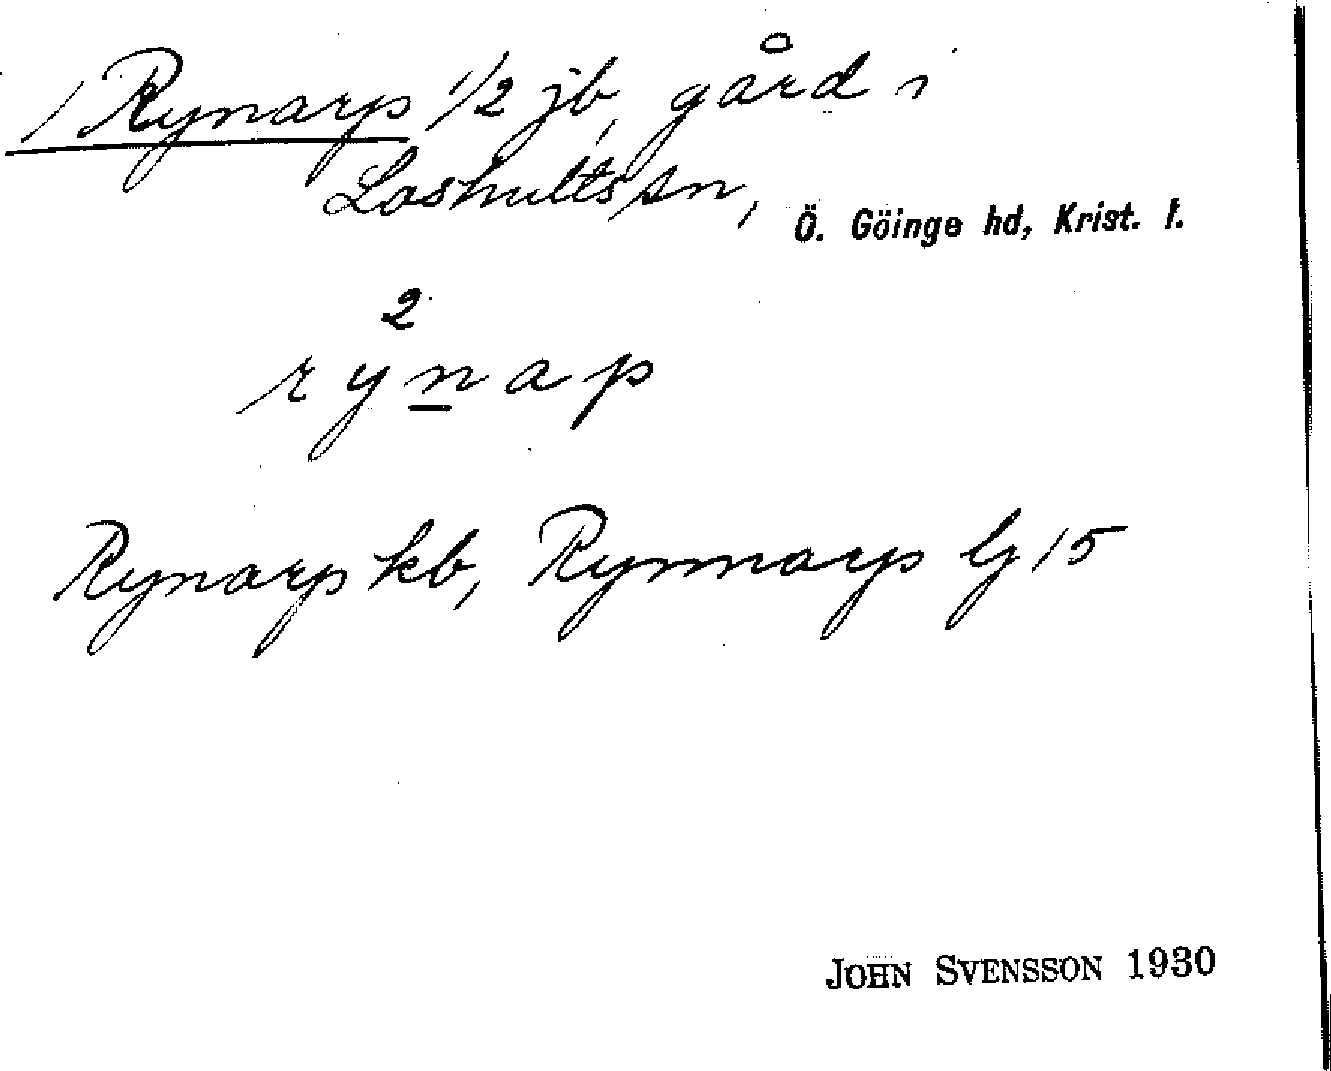 / Rynarp 1/2 jb, gård i
Loshults sn, Ö. Göinge hd, Krist. l.
2
rynap
Rynarp kb, Rynnarp lj 15
JOHN SVENSSON 1930